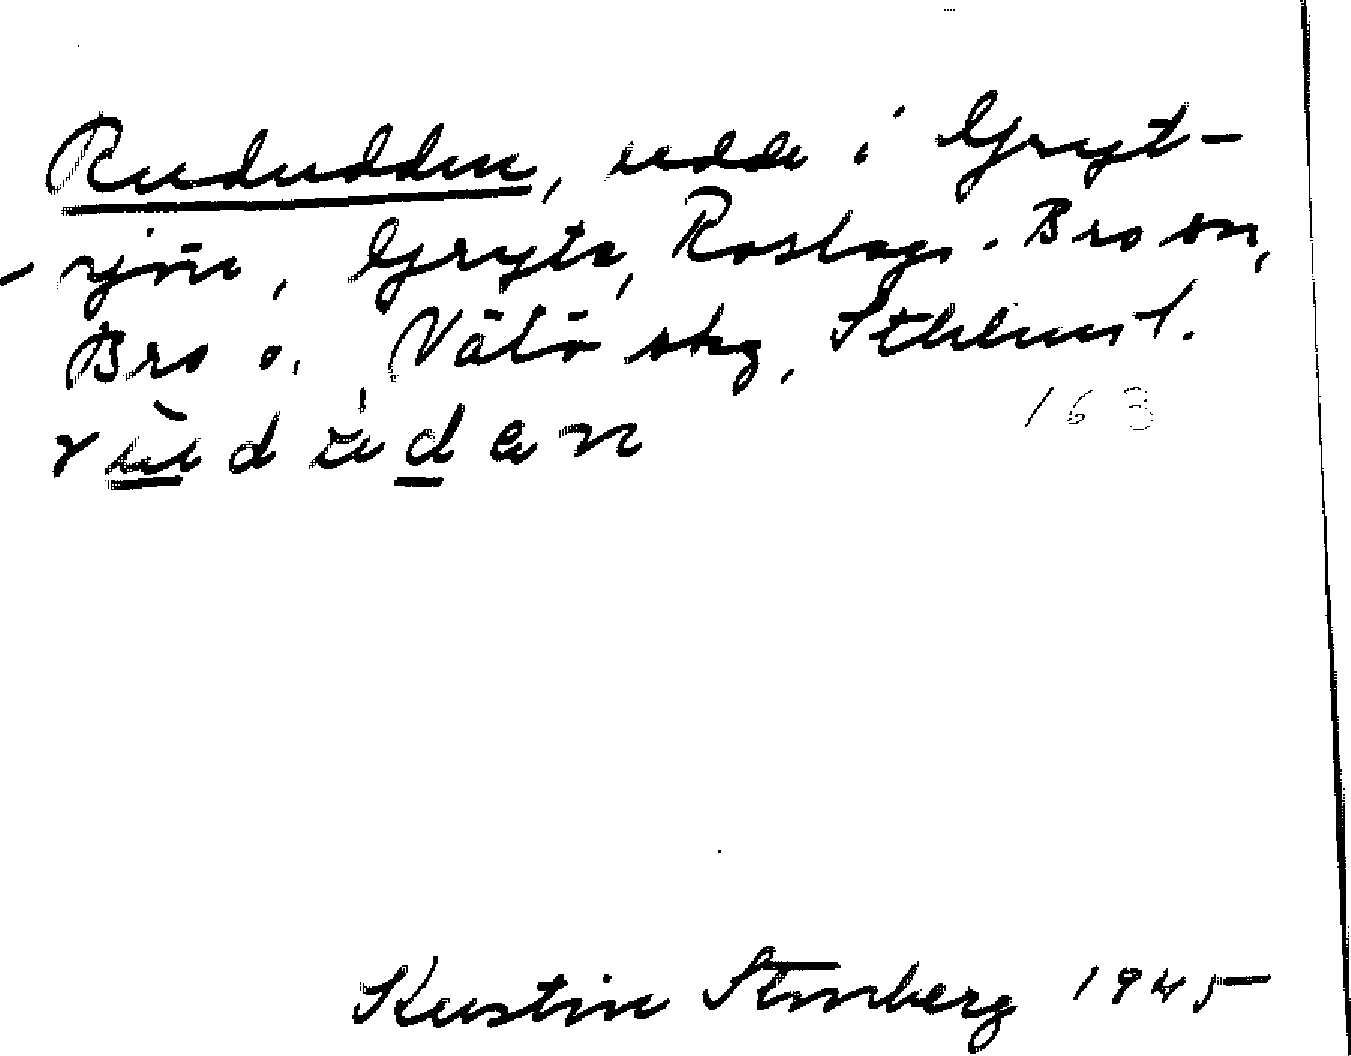 Rududden, udde i Gryt-
sjön, Gryta, Roslags-Bro sn,
Bro o. Vätö skg, Sthlms l.
163
Kerstin Stenberg 1945